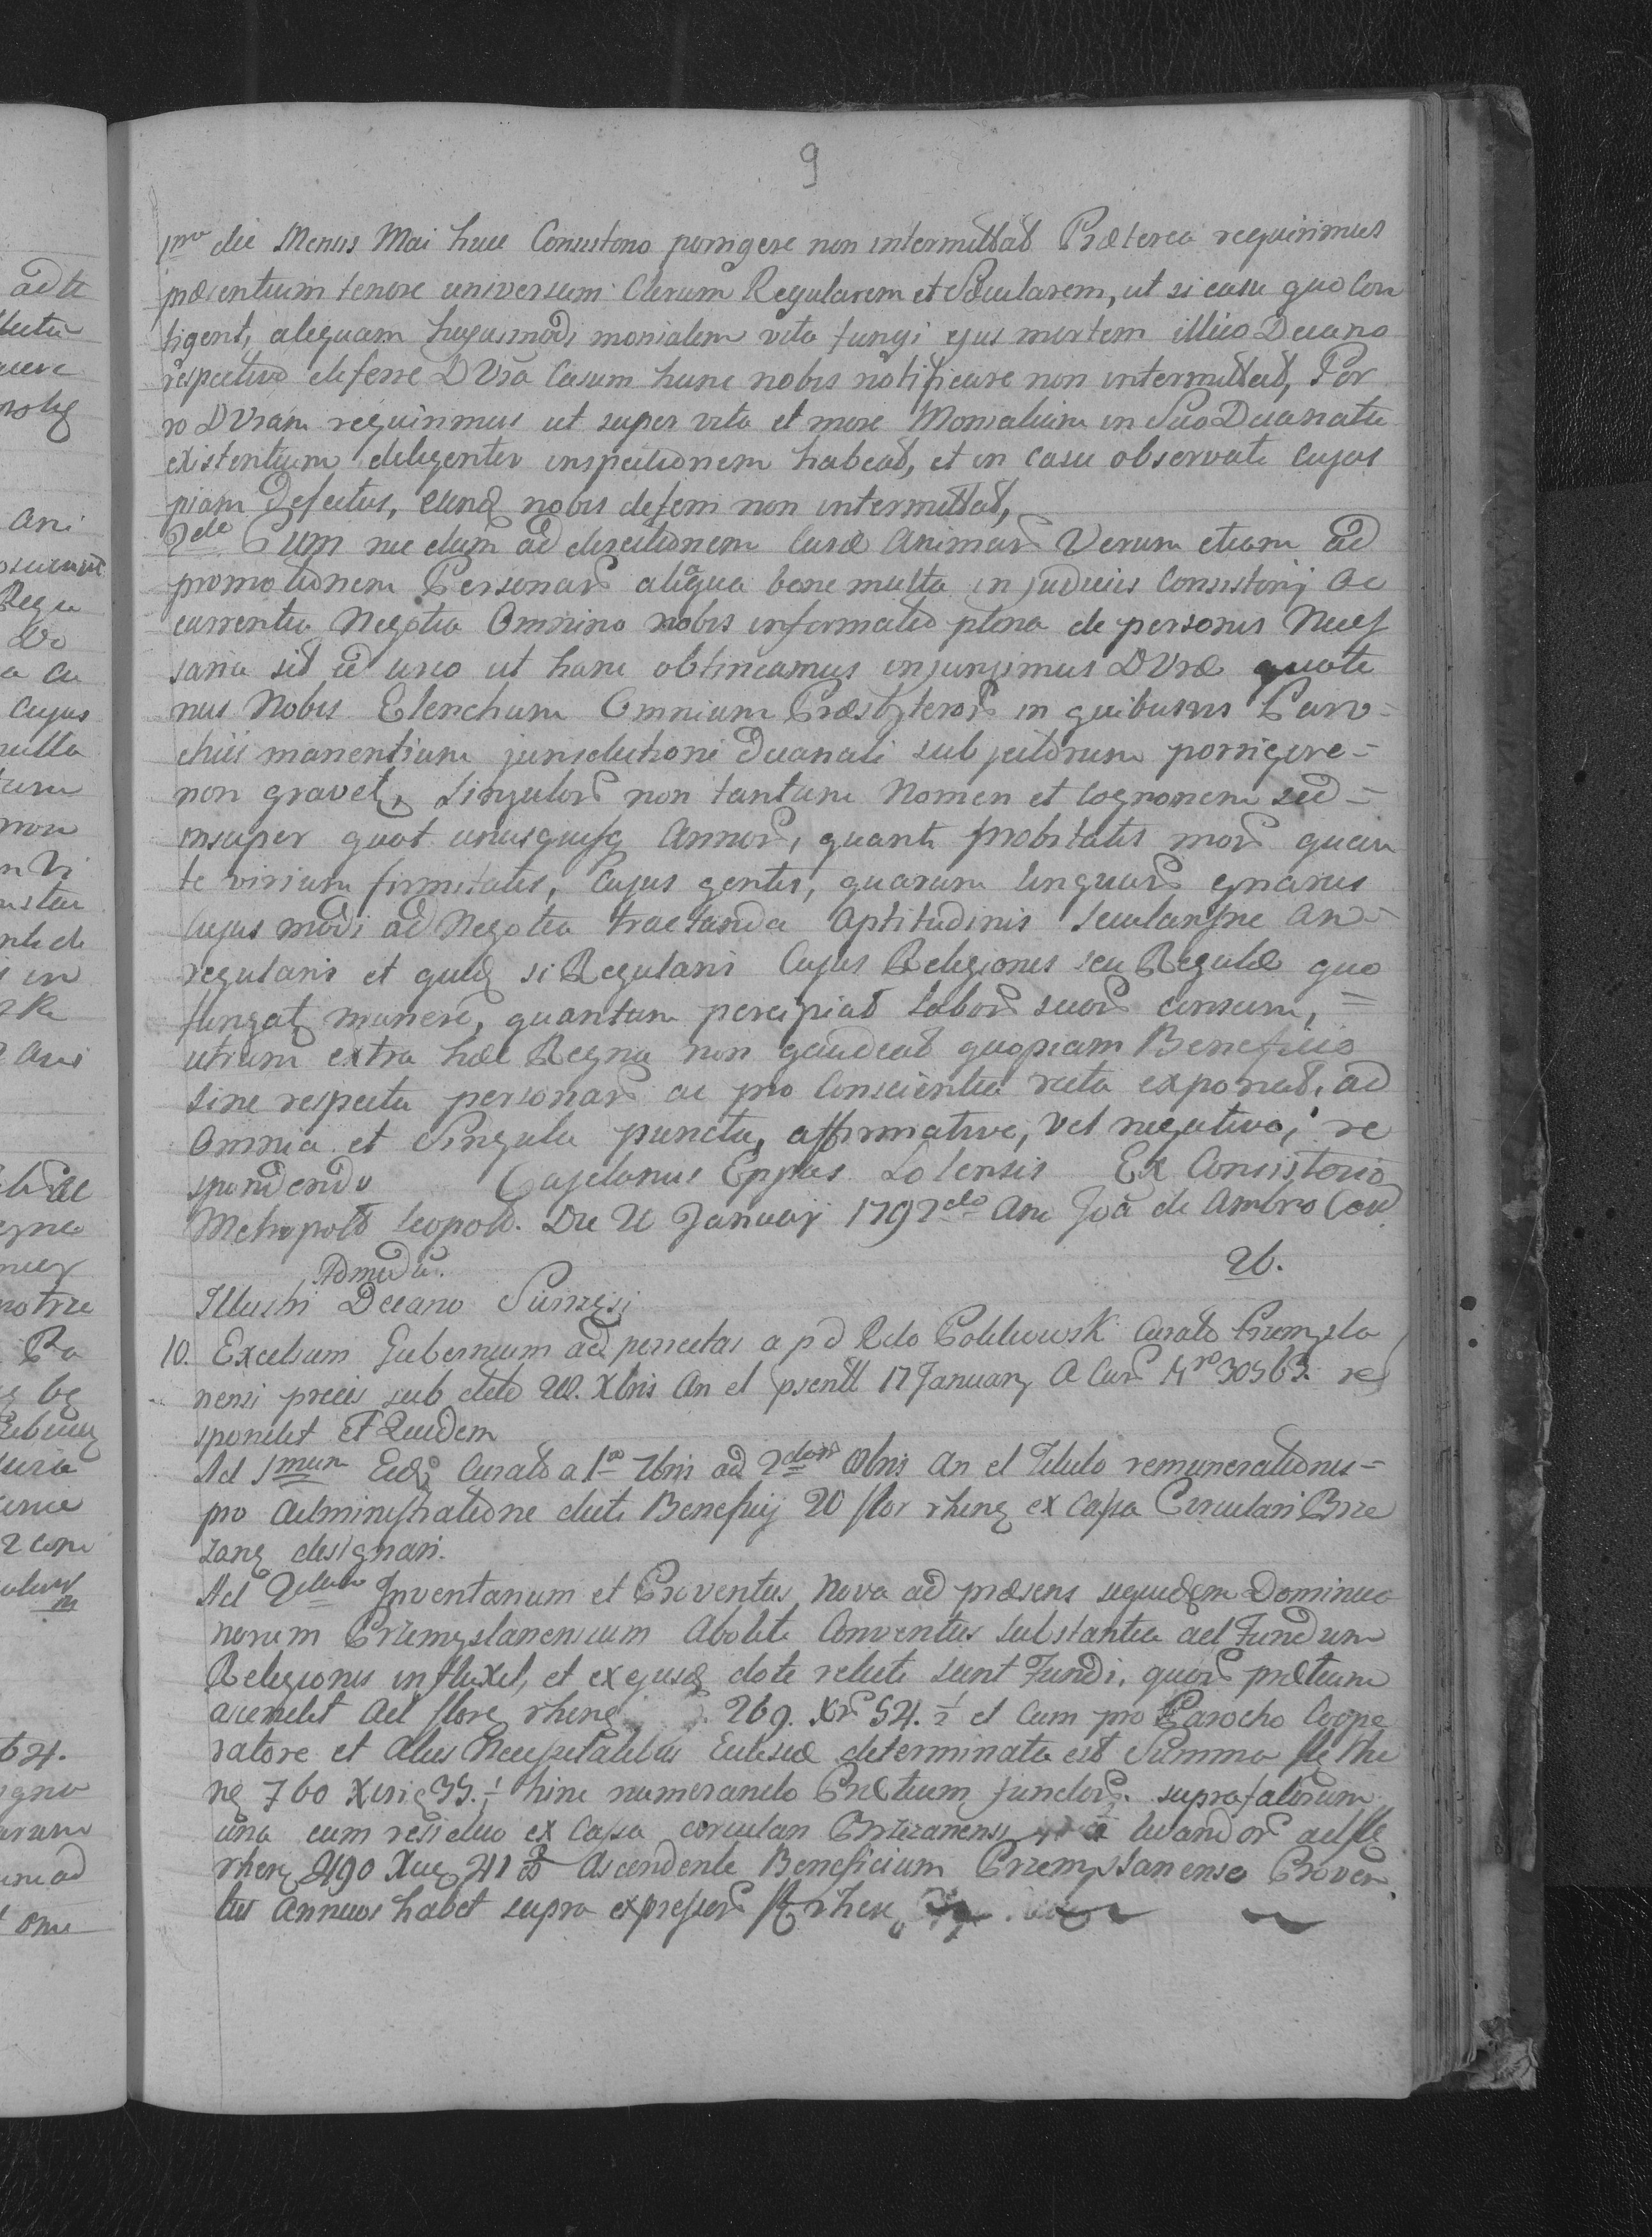 9
1mo die Mensis Mai huic Consistorio porrigere non intermittat Præterea requirimus
præsentium tenore universum Clerum Regularem et Sæcularem, ut si casu quo Con
tigerit, aliquam hujusmodi monialem vita fungi ejus mortem illico Decano
respectivo deferre DVra Casum hunc nobis notificare non intermittat, Por
ro DVram requirimus ut super vita et more Monialium in Suo Decanatu
existentium diligenter inspectionem habeat, et in casu observati cujus
piam Defectus, eund nobis deferri non intermittat,
2do Cum ne dum ad directionem Curæ Animar Verum etiam ad
promotionem Personar aliqua bene multa in judiciis Consistorij oc
currentia Negotia Omnino nobis informatio plena de personis Necess
saria sit id circo ut hanc obtineamus injungimus DVræ quate
nus Nobis Elenchum Omnium Præsbyteror in quibusvis Paro=
chiis manentium jurisdictioni Decanali subjectorum porrigere=
non gravet, Singulor non tantum Nomen et Cognomen sed=
insuper quot unusquisq Annor, quantæ probitatis mor quan
tæ virium firmitatis, Cujus gentis, quarum linguar gnarus
cujus modi ad Negotia tractanda Aptitudinis Secularisne an=
regularis et quid si Regularis Cujus Religionis seu Regulæ quo
fungat munere, quantum percipiat labor suor censum,=
utrum extra hæc Regna non gaudeat quopiam Beneficio
sine respectu personar ac pro Conscientia recta exponat, ad
Omnia et Singula puncta, affirmative, vel negative, re
spondendo Cajetanus Eppus Ex Consistorio
Metropolt Leopold. Die 21 Januarij 1792do Ann Joa de Ambro Can
26.
Admodu.
Illustri Decano
10. Excelsum Gubernium ad
nensi preces sub dato Xbris An et psentt 17 January A Cur Nro 30563. re
spondet Et Quidem
Ad 1mum Eid Curato a 1a 7bris ad An et Titulo remunerationis=
pro Administratione dicti Beneficij 20 flor rhen ex Cassa Circulari Brze
zan designari.
Ad 2dum Inventarium et Proventus Nova ad præsens siquidem Dominica
norum Przemyslanensium Aboliti Conventus substantia ad Fundum
Religionis influxit, et ex ejusd dote relicti sunt Fundi, quor prætium
ascendit ad flore rhen 269. Xr 54. ½ et Cum pro Parocho Coope
ratore et aliis Necessitatibus Eclesiæ determinata est Summa fl rhe
n 760 Xeris 35. ½ hinc numerando Prætium fundor. suprafatorum
una cum residuo ex Cassa circulari Brzezanensi levandor ad fl
rhen 490 Xer 41 Ascendente Beneficium Przemyslanense Proven
tus Annuos habet supra expressor fl rhen